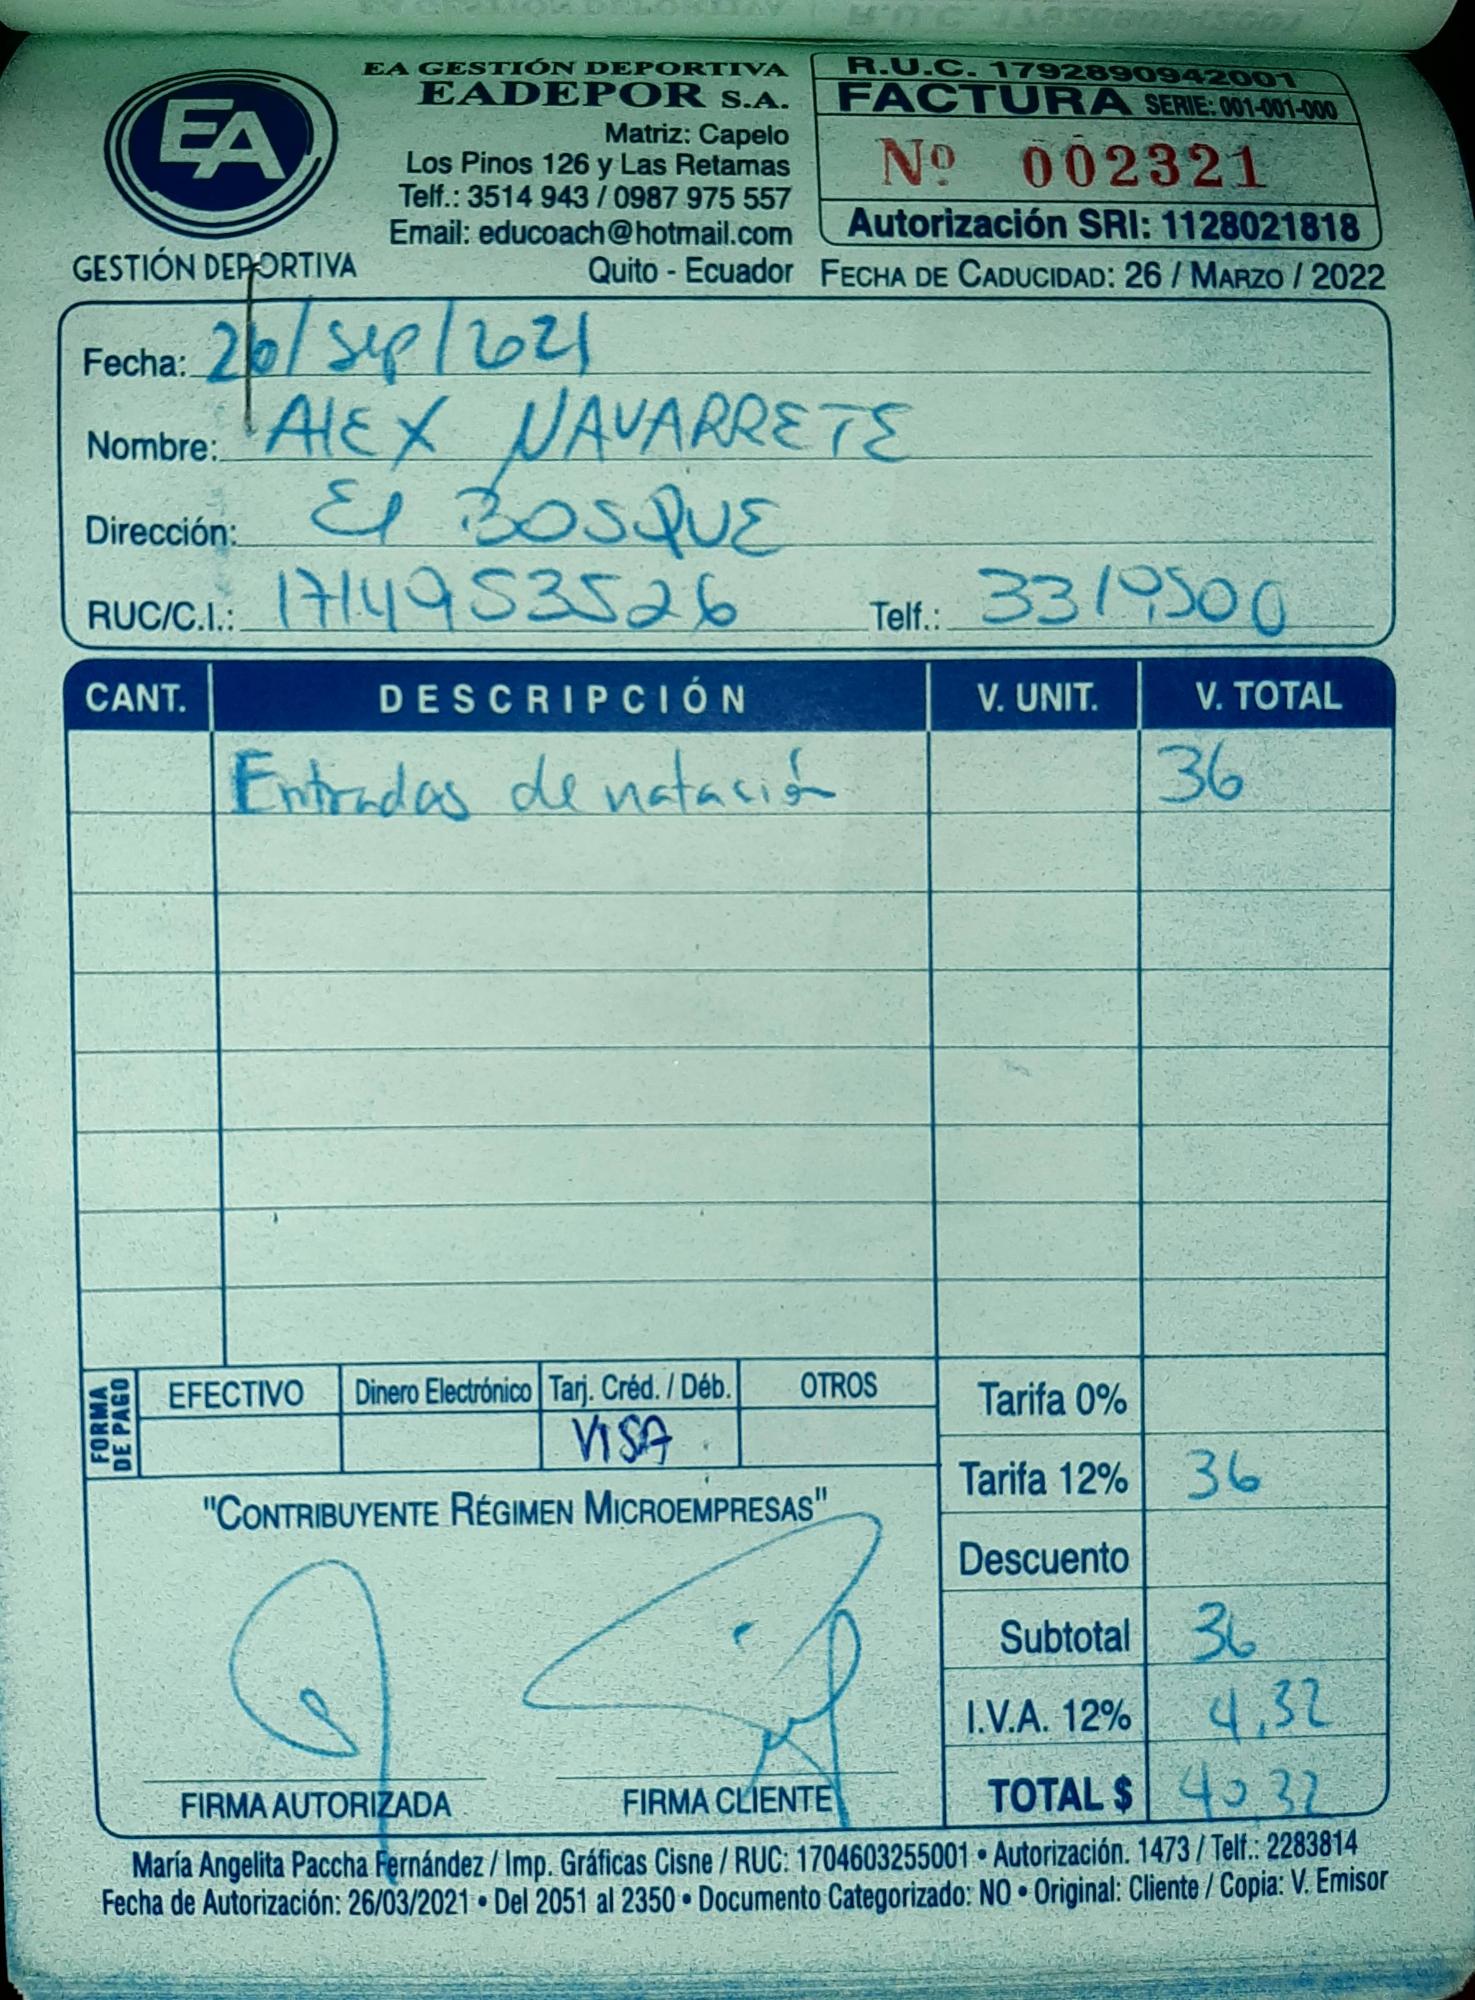 EA
GESTIÓN DEPORTIVA
EA GESTIÓN DEPORTIVA
EADEPOR S.A.
Matriz: Capelo
Los Pinos 126 y Las Retamas
Telf.: 3514 943 / 0987 975 557
Email: educoach@hotmail.com
Quito - Ecuador
R.U.C. 1792890942001
FACTURA SERIE: 001-001-000
Nº 002321
Autorización SRI: 1128021818
FECHA DE CADUCIDAD: 26 / MARZO / 2022
Fecha: 26/Sep/2021
Nombre: AlEX NAVARRETE
Dirección: El BOSQUE
RUC/C.I.: 1714953526 Telf.: 3319500
CANT. DESCRIPCIÓN V. UNIT. V. TOTAL
Entradas de natación 36
FORMA DE PAGO
EFECTIVO Dinero Electrónico Tarj. Créd. / Déb. OTROS
VISA
Tarifa 0%
Tarifa 12% 36
Descuento
Subtotal 36
I.V.A. 12% 4,32
TOTAL $ 40 32
"CONTRIBUYENTE RÉGIMEN MICROEMPRESAS"
FIRMA AUTORIZADA FIRMA CLIENTE
María Angelita Paccha Fernández / Imp. Gráficas Cisne / RUC: 1704603255001 • Autorización. 1473 / Telf.: 2283814
Fecha de Autorización: 26/03/2021 • Del 2051 al 2350 • Documento Categorizado: NO • Original: Cliente / Copia: V. Emisor